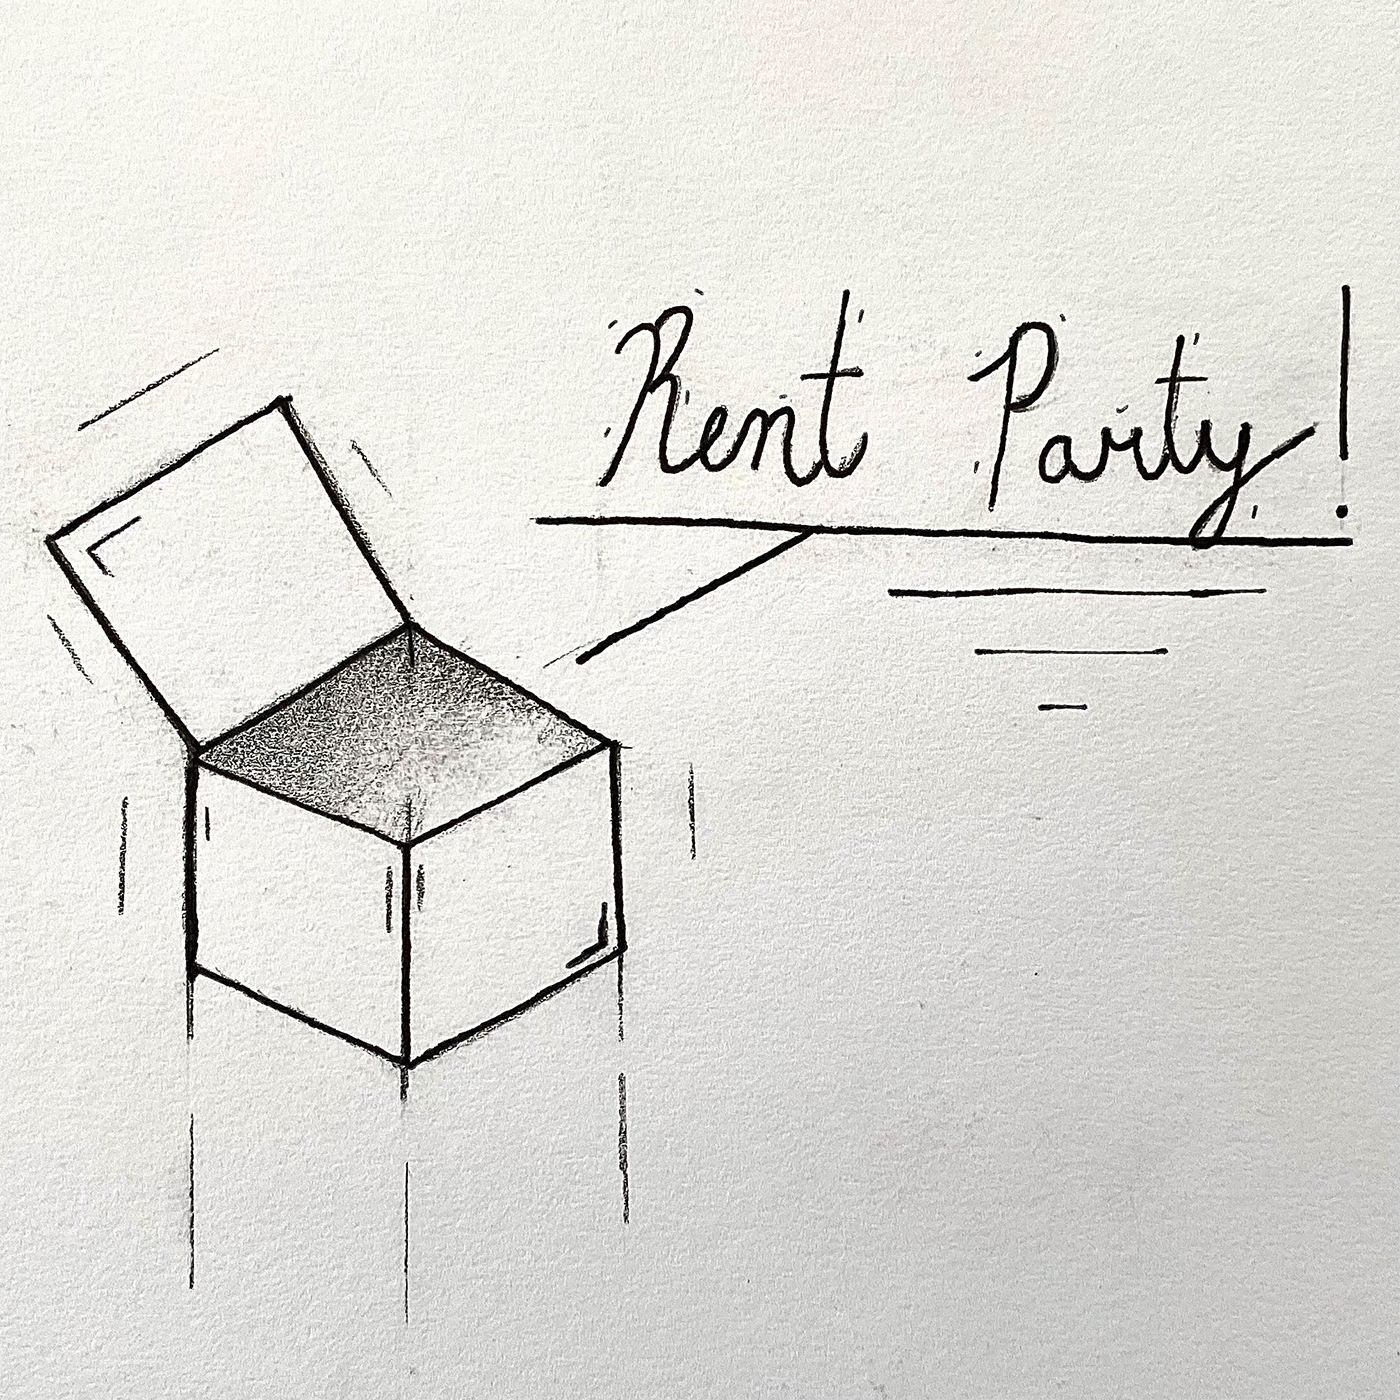 Rent Party!